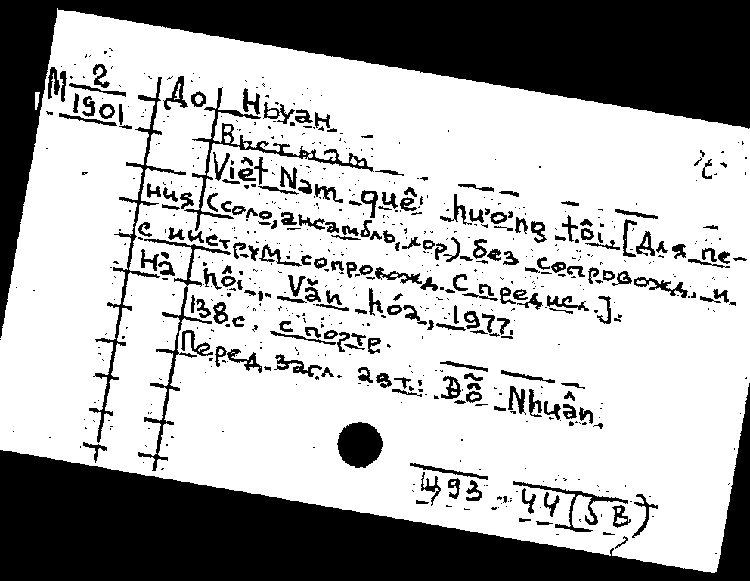 М 2
1901
До Ньуан
Вьетнам
Việt Nam quê hương tôi. [Для пе-
ния (соло, ансамбль, хор) без сопровожд. и
с инструм. сопровожд. С предисл.].
Hà nội, Văn hóa, 1977.
138 с. с портр.
Перед загл. авт.: Đỗ Nhuận.
Щ93 44(5В)